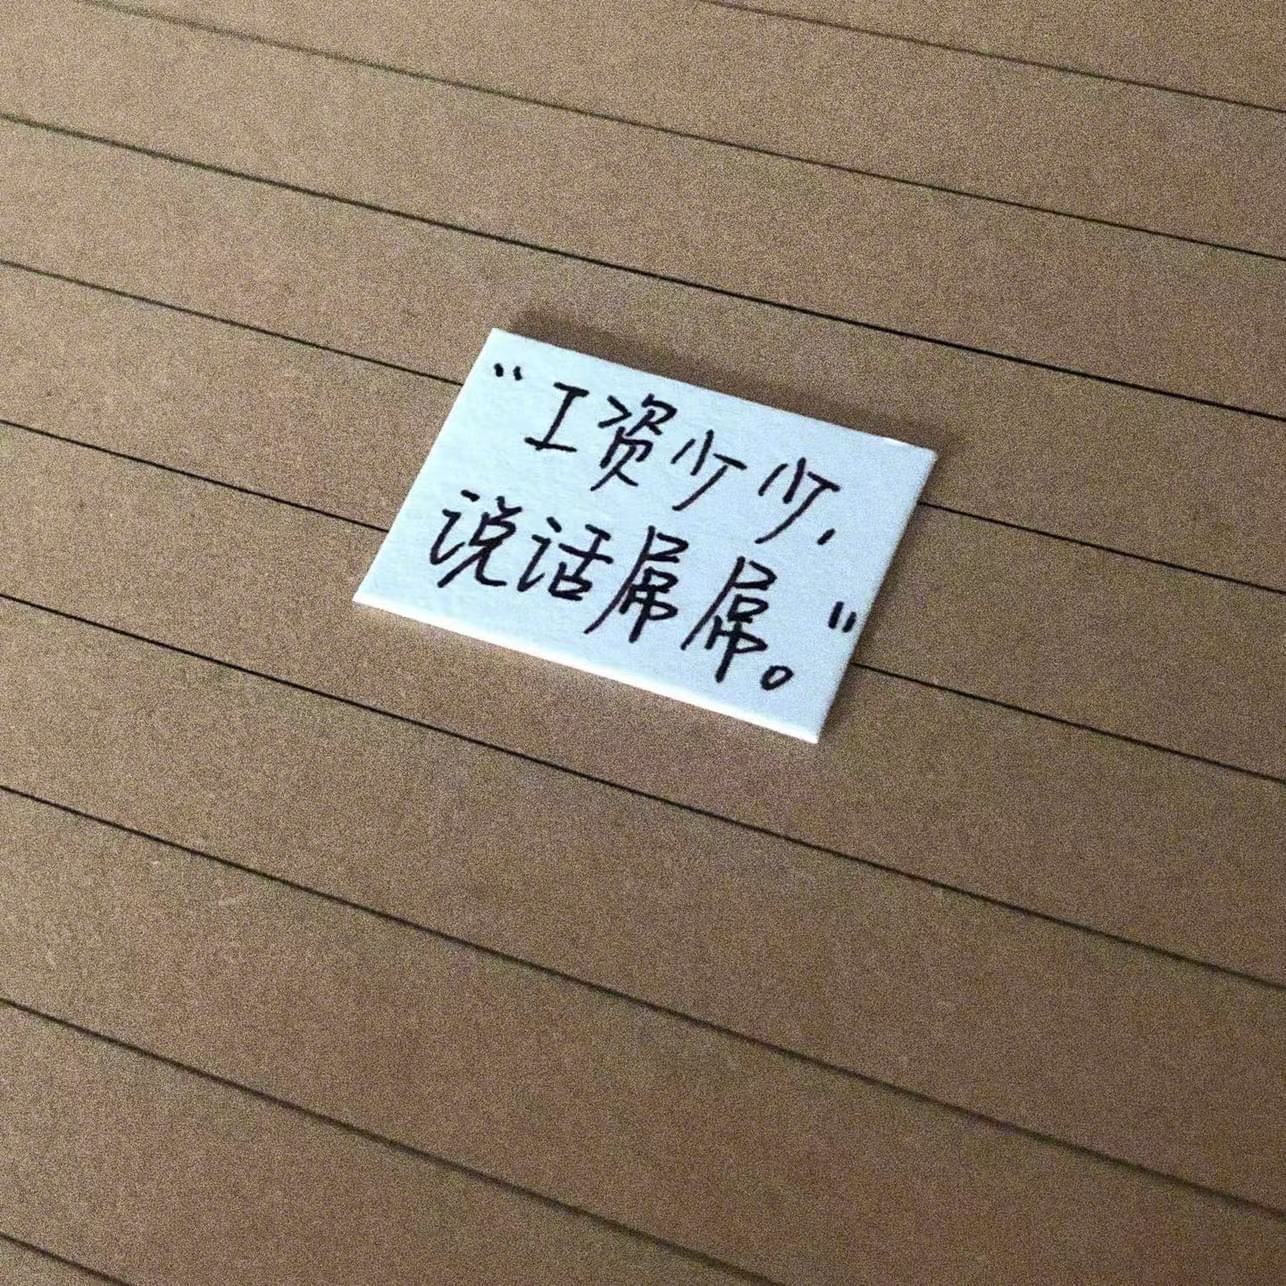 “工资少少，
说话屌屌。”